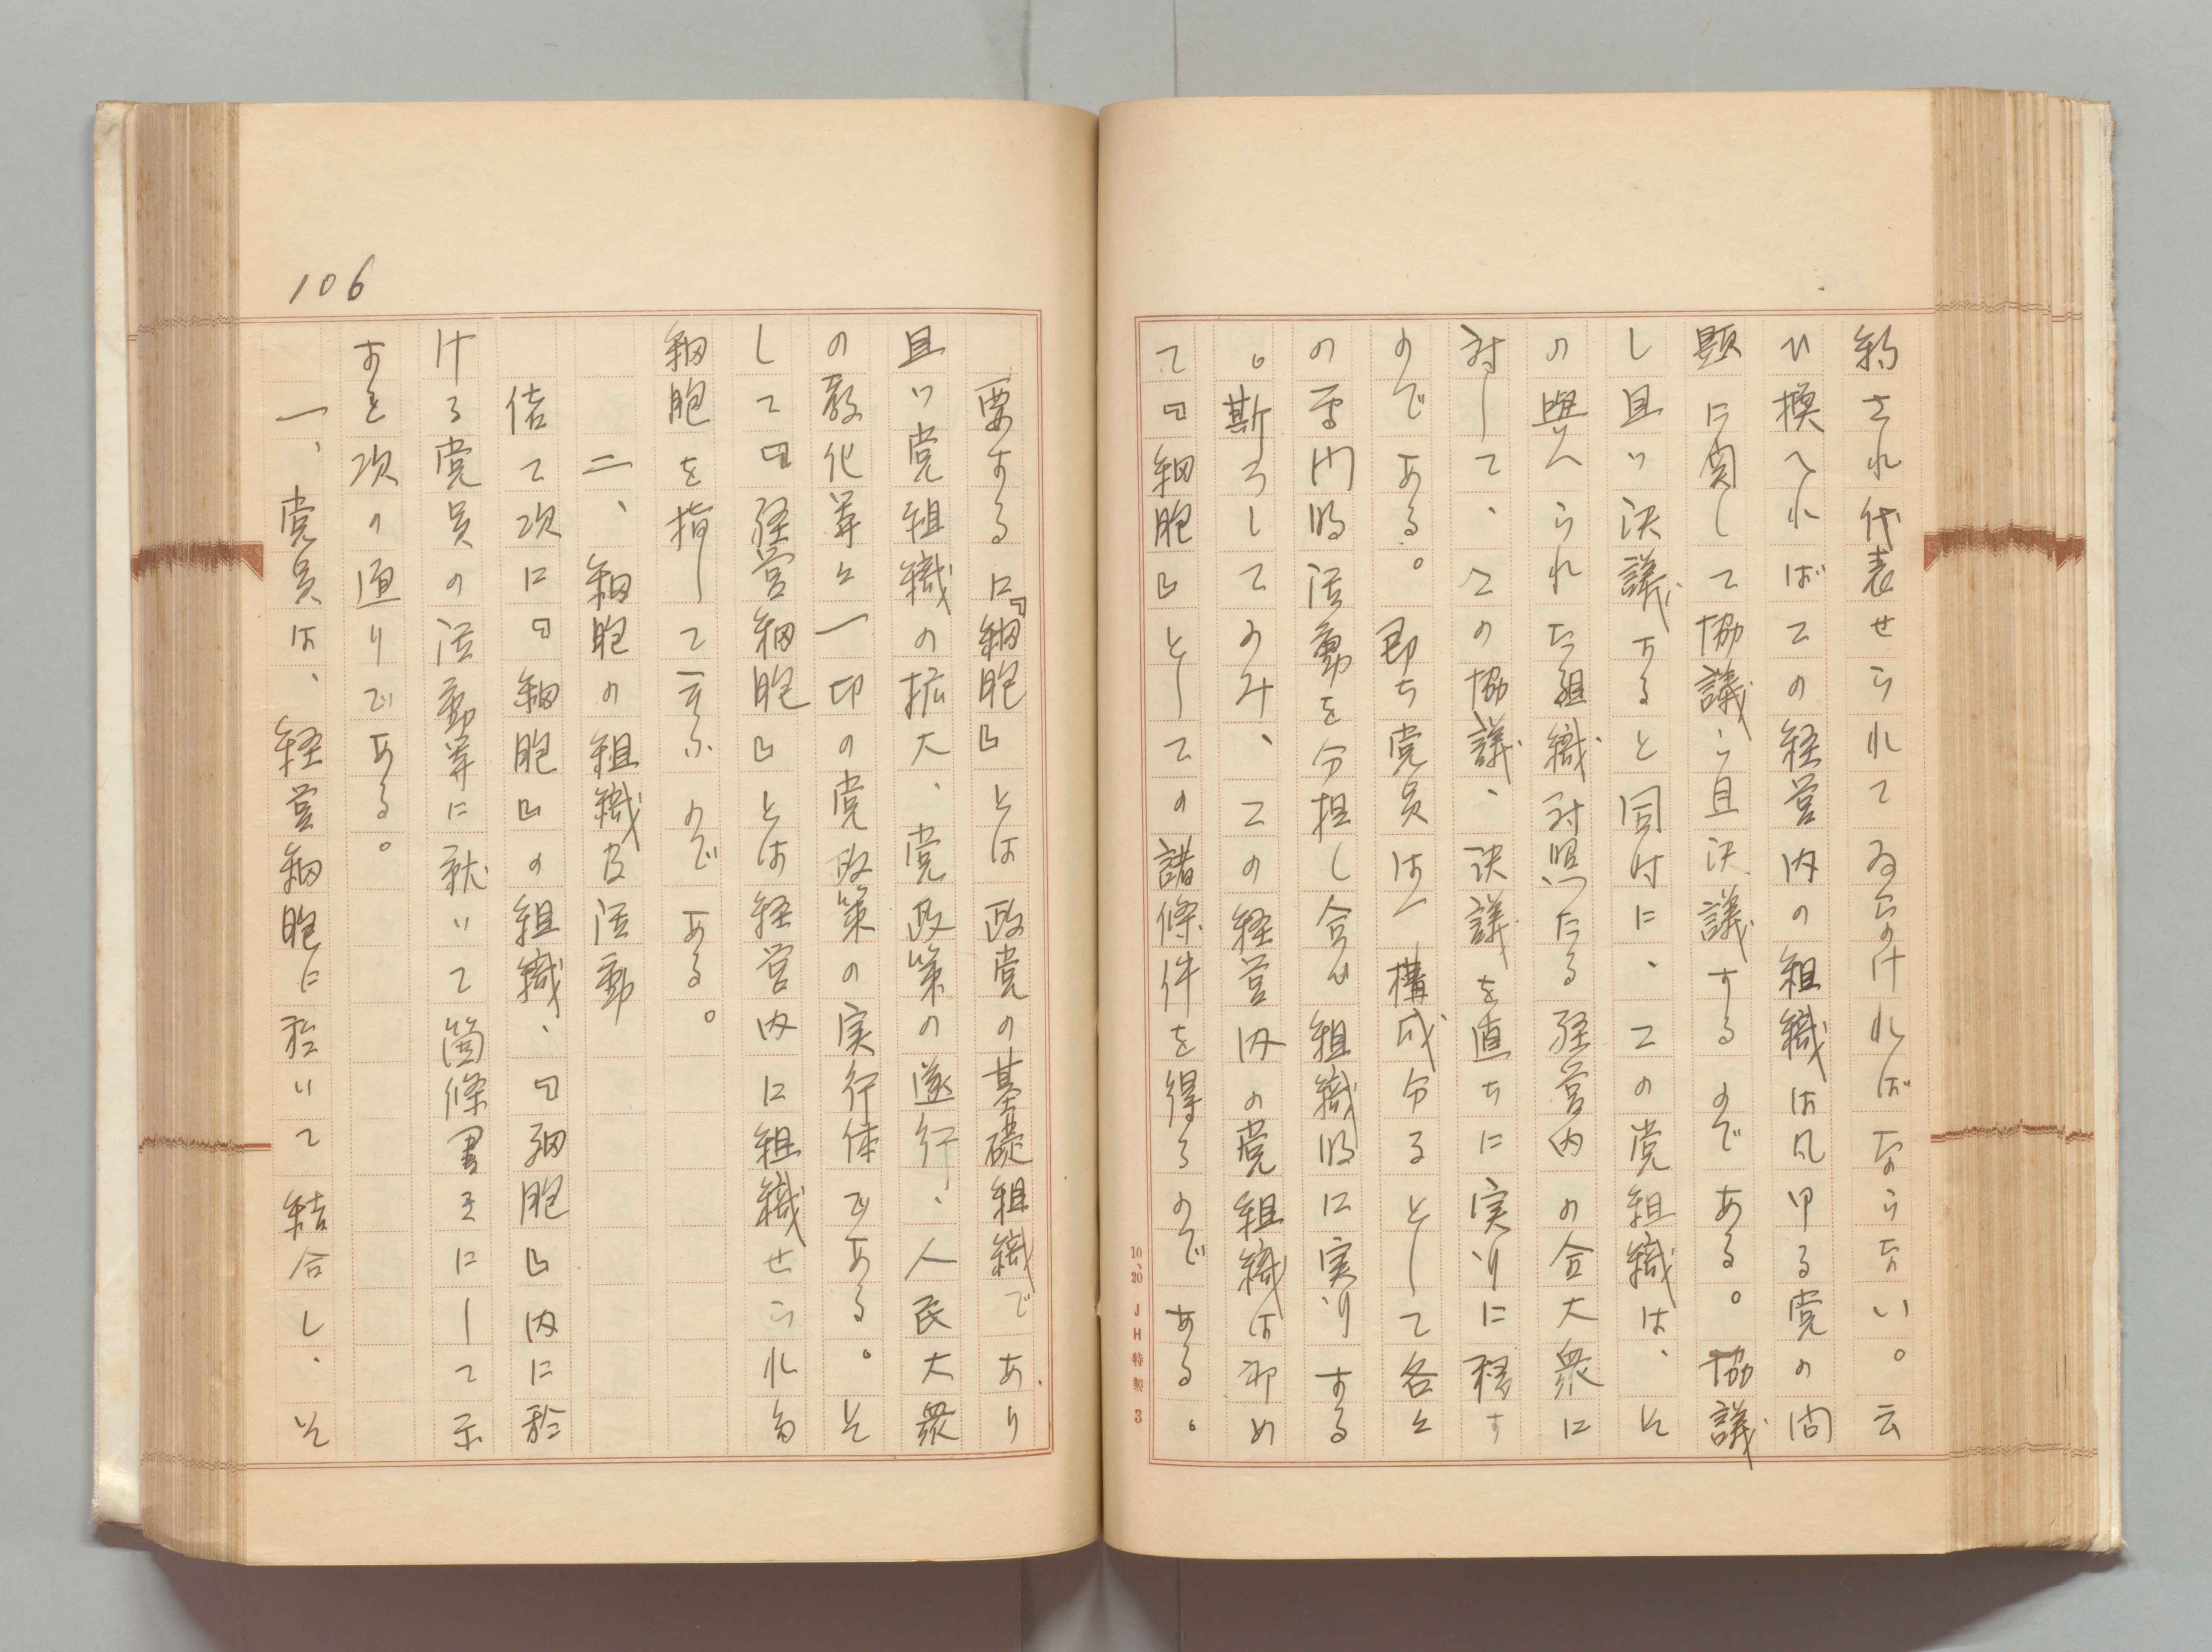 約され代表せられてゐなければならない。云
ひ換へればこの経営内の組織は凡ゆる党の問
題に関して協議し且決議するのである。協議
し且つ決議すると同時に、この党組織は、そ
の与へられた組織対照たる経営内の全大衆に
対して、この協議、決議を直ちに実行に移す
のである。即ち党員は一構成分子として各々
の専門的活動を分担し合ひ組織的に実行する
。斯ろしてのみ、この経営内の党組織は初め
て『細胞』としての諸條件を得るのである。
10、20 JH特製 3
106
要するに『細胞』とは政党の基礎組織であり
且つ党組織の拡大、党政策の遂行、人民大衆
の教化等々一切の党政策の実行体である。そ
して『経営細胞』とは経営内に組織せられる
細胞を指して云ふのである。
二、細胞の組織及活動
偖て次に『細胞』の組織、『細胞』内に於
ける党員の活動等に就いて箇條書きにして示
すと次の通りである。
一、党員は、経営細胞に於いて結合し、そ